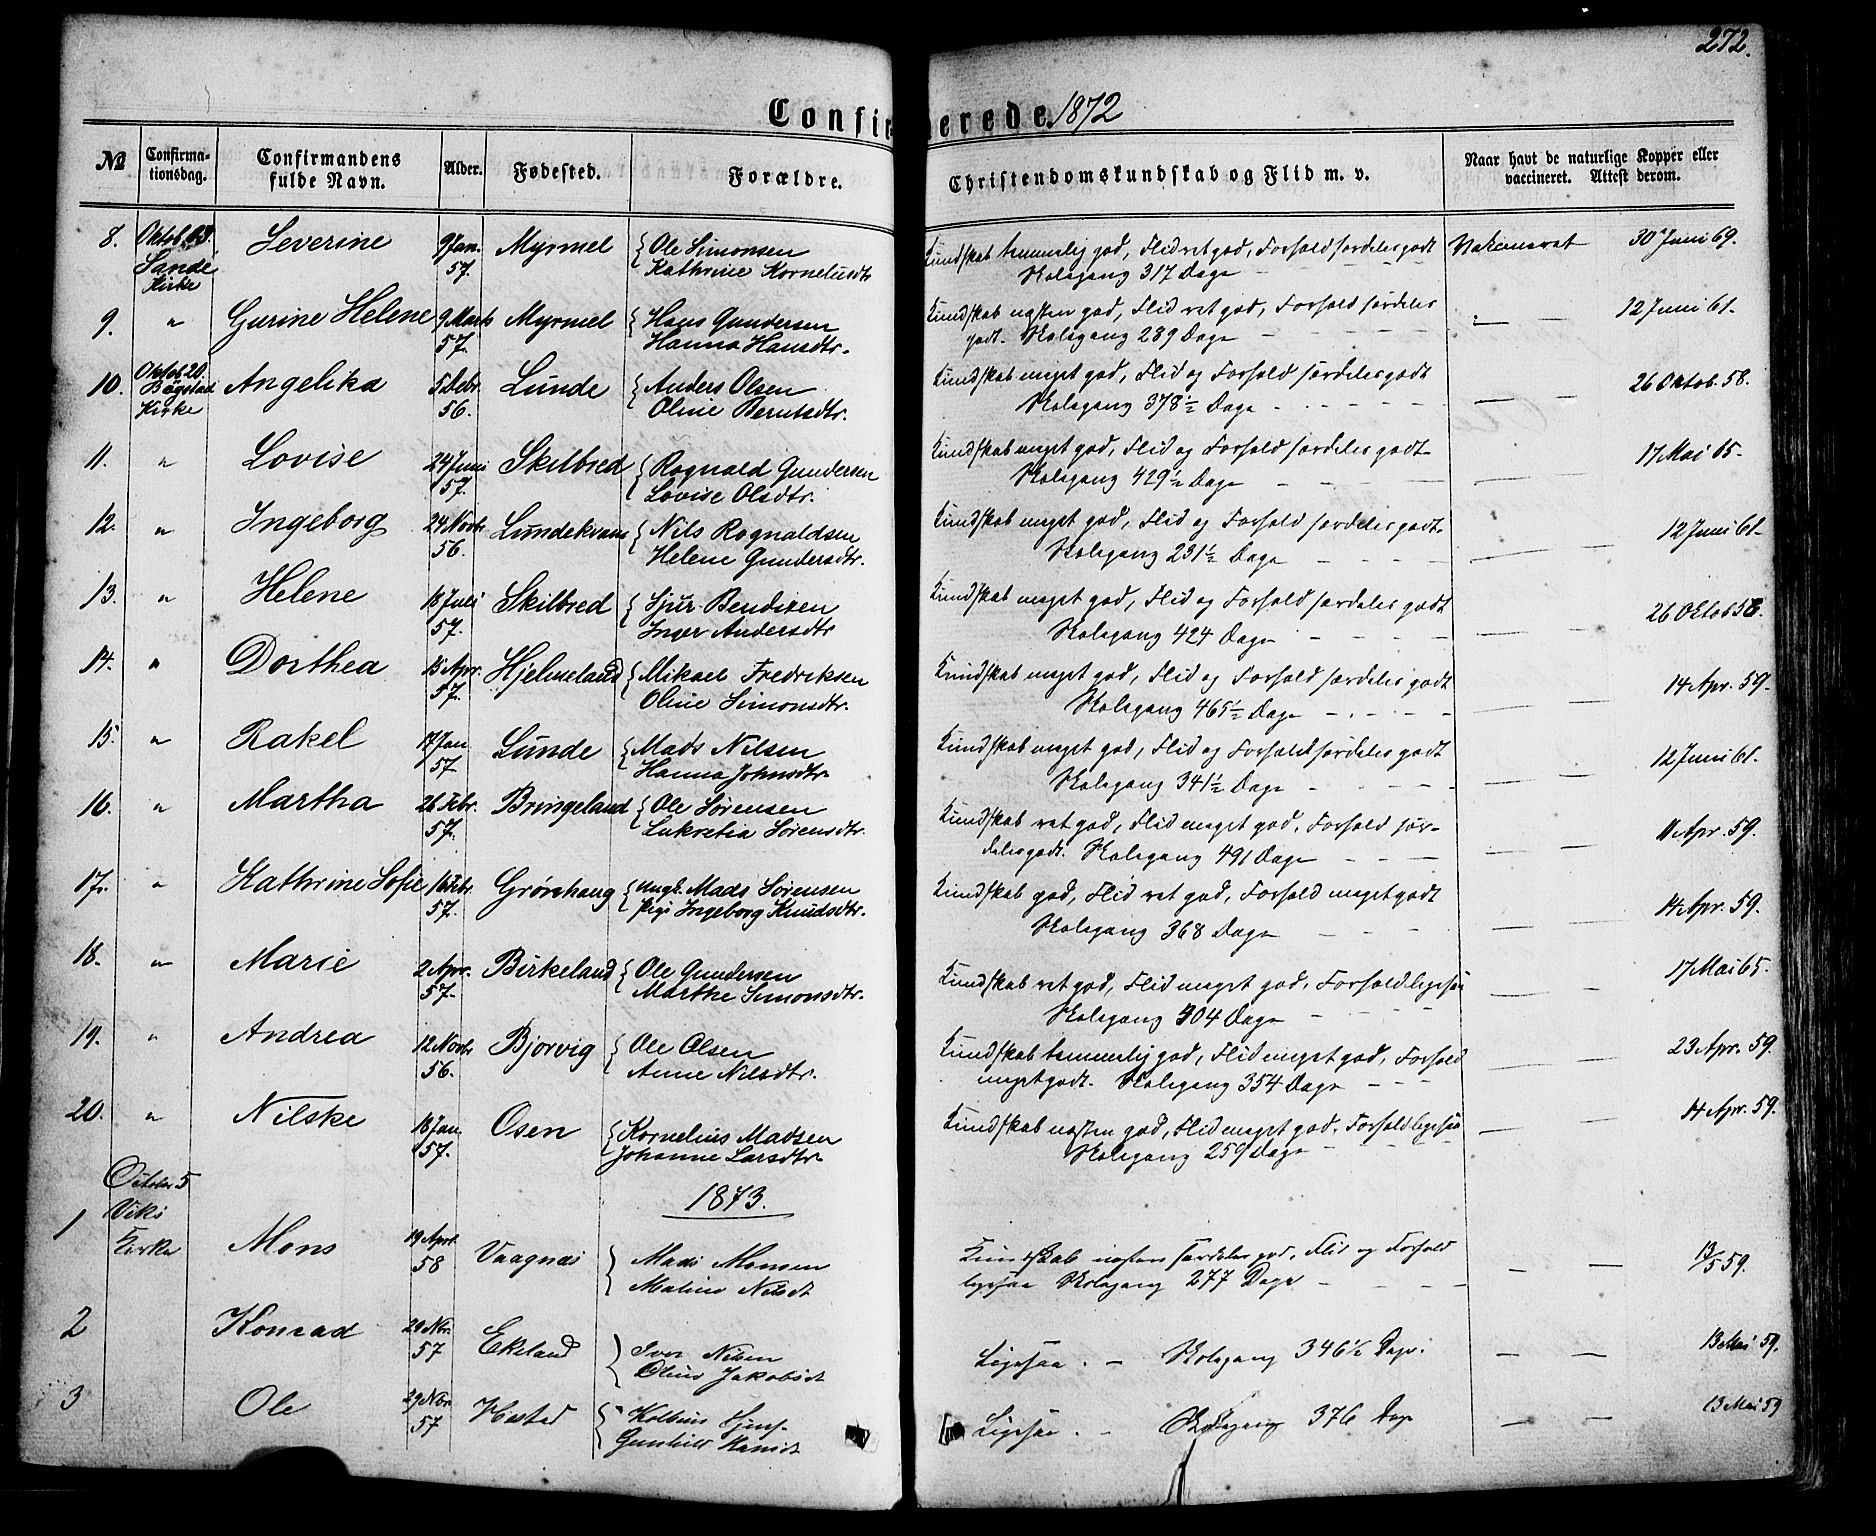 272.
Confirmerede 1872
No
Confirma-
tionsdag.
Confirmandens
fulde Navn.
Alder.
Fødested.
Forældre.
Christendomskundskab og Flid m. v.
Naar havt de naturlige Kopper eller
vaccineret. Attest derom.
8. Oktob. Severine 9 Jan. Myrmel Ole Simonsen Kundskab temmelig god, Flid ret god, Forhold særdeles godt 30 Juni 69.
Sande Kirke 57. Kathrine Kornelusdtr Skolegang 317 Dage
9. " Gurine Helene 9 Marts Myrmel Hans Gundersen Kundskab næsten god, Flid ret god, Forhold særdeles — — 12 Juni 61.
57. Hanna Hansdtr. godt. Skolegang 289 Dage
10. Oktob. 20. Angelika 5 Debr. Lunde Anders Olsen Kundskab meget god, Flid og Forhold særdeles godt — — 26 Oktob. 58.
Bygstad Kirke 56. Oline Berntsdtr. Skolegang 378½ Dage
11. " Lovise 24 Juni Skilbred Rognald Gundersen Kundskab meget god, Flid og Forhold særdeles godt — — 17 Mai 65.
57. Lovise Olsdtr. Skolegang 429½ Dage
12. " Ingeborg 24 Novbr. Lundekvam Nils Rognaldsen Kundskab meget god, Flid og Forhold særdeles godt — — 12 Juni 61.
56. Helene Gundersdtr. Skolegang 231½ Dage
13. " Helene 18 Juli Skilbred Sjur Bendixen Kundskab meget god, Flid og Forhold særdeles godt — — 26 Oktob 58.
57. Inger Andersdtr Skolegang 424 Dage
14. " Dorthea 15 Apr. Hjelmeland Mikael Fredriksen Kundskab meget god, Flid og Forhold særdeles godt — — 14 Apr. 59.
57. Oline Simonsdtr. Skolegang 465½ Dage
15. " Rakel 17 Jan Lunde Mads Nilsen Kundskab meget god, Flid og Forhold særdeles godt — — 12 Juni 61.
57 Hanna Johnsdtr. Skolegang 341½ Dage
16. " Martha 26 Febr. Bringeland Ole Sørensen Kundskab ret god, Flid meget god, Forhold sær- — — 11 Apr. 59.
57. Lukretia Sørensdtr. deles godt. Skolegang 491 Dage
17. " Kathrine Sofie 16 Febr. Grønhaug Ungk. Mads Sørensen Kundskab god, Flid ret god, Forhold meget godt — — 14 Apr. 59.
57. Pige Ingeborg Knudsdtr. Skolegang 368 Dage
18. " Marie 2 Apr. Birkeland Ole Gundersen Kundskab ret god, Flid meget god, Forhold ligesaa — — 17 Mai 65.
57. Marthe Simonsdtr. Skolegang 304 Dage
19. " Andrea 12 Novbr Bjorvig Ole Olsen Kundskab temmelig god, Flid meget god, Forhold — — 23 Apr. 59.
56. Anne Nilsdtr. meget godt. Skolegang 354 Dage
20. " Nilske 18 Jan. Osen Kornelius Madsen Kundskab næsten god, Flid meget god, Forhold ligesaa — — 14 Apr. 59.
57. Johanne Larsdtr. Skolegang 259 Dage
1873.
1 October 5 Mons 19 Apr. Vaagnæs Mads Monsen Kundskab næsten særdeles god, Flid og Forhold — — 13/5 59.
Viks Kirke 58 Maline Nilsdt ligesaa Skolegang 277 Dage
2 Konrad 29 Nbr. Ekeland Iver Nilsen Ligesaa. — Skolegang 346½ Dage. — — 13 Mai 59.
57 Oline Jakobsdt
3 Ole 29 Nbr. Hestad Ligesaa. — Skolegang 376 Dage — — 13 Mai 59
57 Gunhild Hansdt